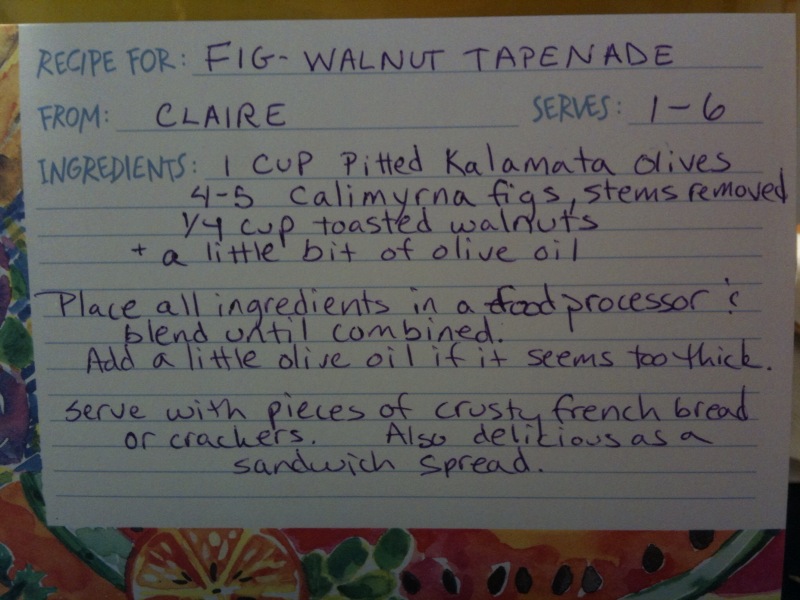 RECIPE FOR: FIG-WALNUT TAPENADE
FROM: CLAIRE SERVES: 1-6
INGREDIENTS: 1 CUP Pitted Kalamata olives
4-5 Calimyrna figs, stems removed
1/4 cup toasted walnuts
+ a little bit of olive oil
Place all ingredients in a food processor &
blend until combined.
Add a little olive oil if it seems too thick.
Serve with pieces of crusty french bread
or crackers. Also delicious as a
sandwich spread.